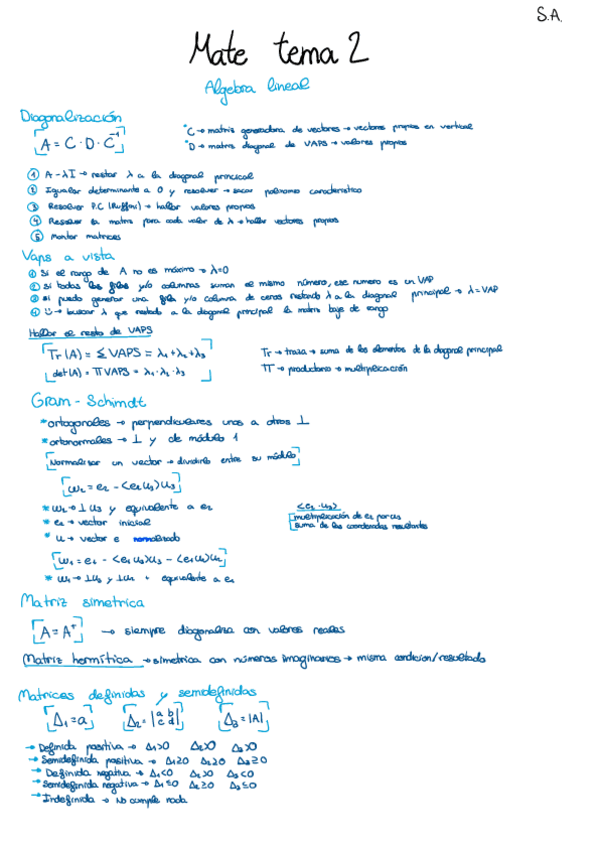 S.A.
Mate tema 2
Algebra lineal
Diagonalización
A = C · D · C⁻¹
*C → matriz generadora de vectores → vectores propios en vertical
*D → matriz diagonal de VAPS → valores propios
① A - λI → restar λ a la diagonal principal
② Igualar determinante a 0 y resolver → sacar polinomio característico
③ Resolver P.C (Ruffini) → hallar valores propios
④ Resolver la matriz para cada valor de λ → hallar vectores propios
⑤ Montar matrices
Vaps a vista
① Si el rango de A no es máximo → λ=0
② si todas las filas y/o columnas suman el mismo número, ese numero es un VAP
③ si puedo generar una fila y/o columna de ceros restando λ a la diagonal principal → λ=VAP
④ → buscar λ que restado a la diagonal principal la matriz baje de rango
Hallar el resto de VAPS
Tr (A) = Σ VAPS = λ₁+λ₂+λ₃
det(A) = Π VAPS = λ₁·λ₂·λ₃
Tr → traza → suma de los elementos de la diagonal principal
Π → productorio → multiplicación
Gram - Schimdt
*ortogonales → perpendiculares unos a otros ⊥
*ortonormales → ⊥ y de módulo 1
Normalizar un vector → dividirlo entre su módulo
w₂ = e₂ - <e₂u₃>u₃
*w₂ → ⊥ u₃ y equivalente a e₂
* e₂ → vector inicial
* u → vector e normalizado
<e₂ · u₃>
multiplicación de e₂ por u₃
suma de las coordenadas resultantes
w₁ = e₁ - <e₁u₃>u₃ - <e₁u₂>u₂
* w₁ → ⊥u₃ y ⊥u₂ + equivalente a e₁
Matriz simetrica
A = Aᵗ → siempre diagonaliza con valores reales
Matriz hermítica → simetrica con números imaginarios → misma condicion/resultado
Matrices definidas y semidefinidas
Δ₁ = a
Δ₂ = |a b c d|
Δ₃ = |A|
→ Definida positiva → Δ₁>0 Δ₂>0 Δ₃>0
→ Semidefinida positiva → Δ₁≥0 Δ₂≥0 Δ₃≥0
→ Definida negativa → Δ₁<0 Δ₂>0 Δ₃<0
→ Semidefinida negativa → Δ₁≤0 Δ₂≥0 Δ₃≤0
→ Indefinida → No cumple nada